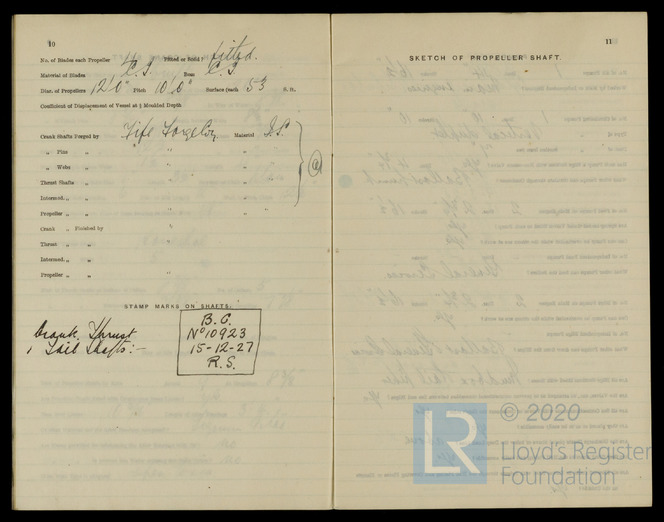 10
No. of Blades each Propeller 4 Fitted or Solid? Fitted.
Material of Blades C.I. Boss C.I.
Diam. of Propellers 12'0" Pitch 10'6" Surface (each 53 S. ft.
Coefficient of Displacement of Vessel at ⅘ Moulded Depth
Crank Shafts Forged by Fife Forge Coy Material I.S.
„ Pins „ " "
„ Webs „ " "
Thrust Shafts „ " "
Intermed. „ „ " "
Propeller „ „ " "
Crank „ Finished by "
Thrust „ „ "
Intermed. „ „ "
Propeller „ „ "
STAMP MARKS ON SHAFTS.
Crank, Thrust
& Tail Shafts:-
B.C.
No 10923
15-12-27
R.S.
11
SKETCH OF PROPELLER SHAFT.
LR © 2020
Lloyd's Register
Foundation